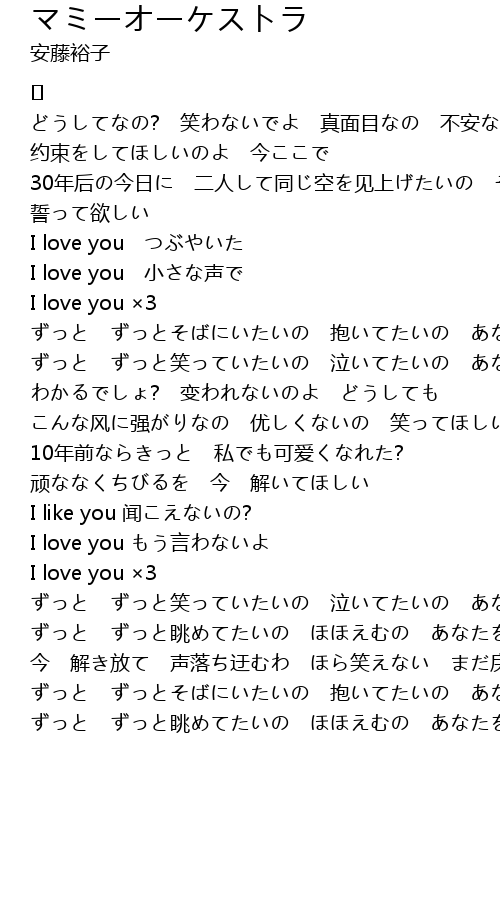 マミーオーケストラ
安藤裕子
どうしてなの?　笑わないでよ　真面目なの　不安な
约束をしてほしいのよ　今ここで
30年后の今日に　二人して同じ空を见上げたいの
誓って欲しい
I love you　つぶやいた
I love you　小さな声で
I love you ×3
ずっと　ずっとそばにいたいの　抱いてたいの　あな
ずっと　ずっと笑っていたいの　泣いてたいの　あな
わかるでしょ?　変われないのよ　どうしても
こんな风に强がりなの　优しくないの　笑ってほしい
10年前ならきっと　私でも可爱くなれた?
顽ななくちびるを　今　解いてほしい
I like you 闻こえないの?
I love you もう言わないよ
I love you ×3
ずっと　ずっと笑っていたいの　泣いてたいの　あな
ずっと　ずっと眺めてたいの　ほほえむの　あなたを
今　解き放て　声落ち迂むわ　ほら笑えない　まだ
ずっと　ずっとそばにいたいの　抱いてたいの　あな
ずっと　ずっと眺めてたいの　ほほえむの　あなたを